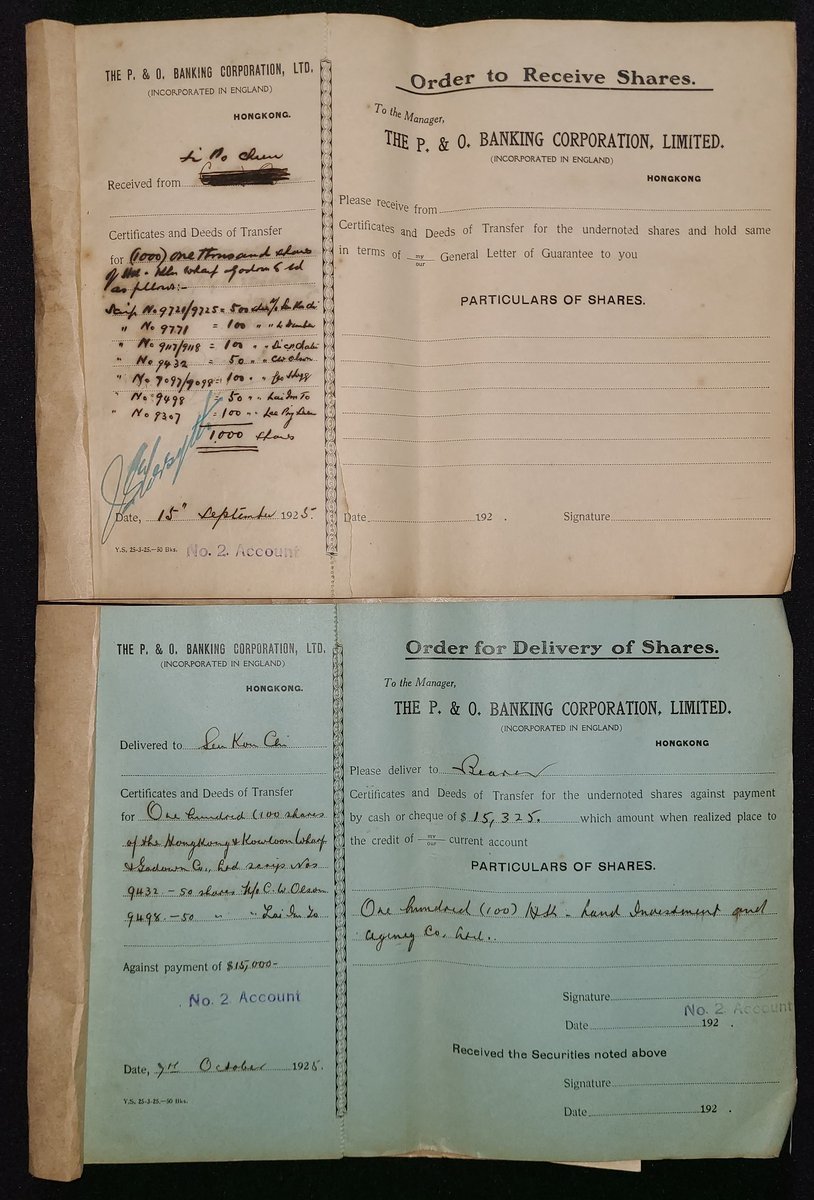 THE P. & O. BANKING CORPORATION, LTD.
(INCORPORATED IN ENGLAND)
HONGKONG.
Li Po Chun
Received from
Certificates and Deeds of Transfer
for (1000) one thousand shares
of Hk. Kln wharf Godown Co Ld
as follows:-
Scrip No 9721/9725 = 500
" No 9771 = 100 " "
" No 9117/9118 = 100 " "
" No 9432 = 50 " " CW Olson
" No 7097/7098 = 100 " "
" No 9498 = 50 " " Lai Im To
" No 9307 = 100 " "
1,000 shares
Date, 15" September 1925.
Y.S. 25-3-25.—50 Bks.
No. 2. Account
Order to Receive Shares.
To the Manager,
THE P. & O. BANKING CORPORATION, LIMITED.
(INCORPORATED IN ENGLAND)
HONGKONG
Please receive from
Certificates and Deeds of Transfer for the undernoted shares and hold same
in terms of my/our General Letter of Guarantee to you
PARTICULARS OF SHARES.
Date 192 . Signature
THE P. & O. BANKING CORPORATION, LTD.
(INCORPORATED IN ENGLAND)
HONGKONG.
Delivered to Seu Kon Chi
Certificates and Deeds of Transfer
for One hundred (100 shares
of the HongKong & Kowloon Wharf
& Godown Co., Ltd scrip Nos
9432 - 50 shares n/o C. W. Olson
9498 - 50 " " Lai Im To
Against payment of $15,000-
No. 2 Account
Date, 7th October 1925.
Y.S. 25-3-25.—50 Bks.
Order for Delivery of Shares.
To the Manager,
THE P. & O. BANKING CORPORATION, LIMITED.
(INCORPORATED IN ENGLAND)
HONGKONG
Please deliver to Bearer
Certificates and Deeds of Transfer for the undernoted shares against payment
by cash or cheque of $ 15,325. which amount when realized place to
the credit of my/our current account
PARTICULARS OF SHARES.
One hundred (100) HK. Land Investment and
Agency Co. Ltd..
Signature
No. 2 Account
Date 192 .
Received the Securities noted above
Signature
Date 192 .